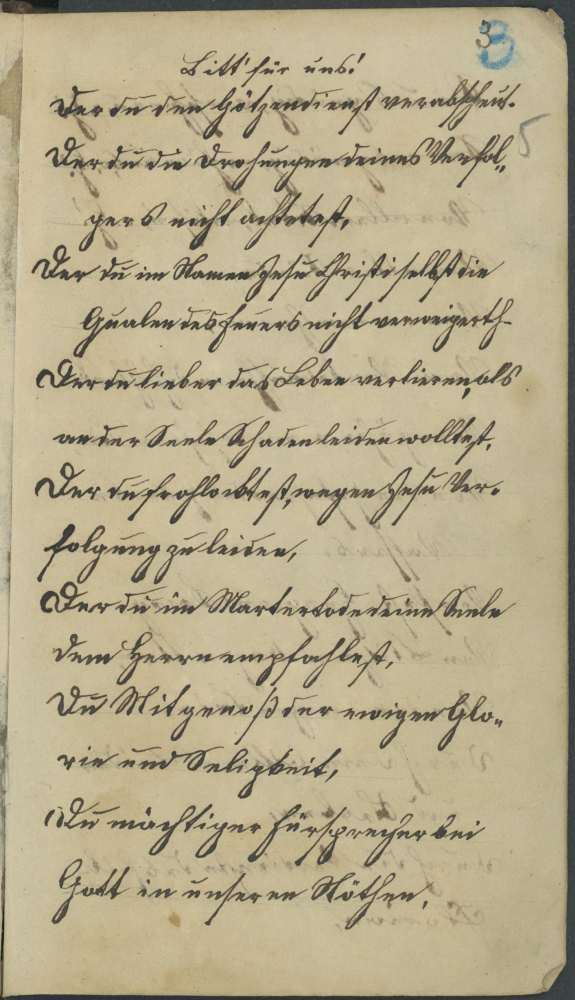 3
Bitt' für uns!
Der du den Götzendienst verabscheut.
5
Der du die Drohungen deines Verfol„
gers nicht achtetest,
Der du im Namen Jesu Christi selbst die
Qualen des Feuers nicht verweigerth.
Der du lieber das Leben verlieren, als
an der Seele Schaden leiden wolltest,
Der du frohlocktest, wegen Jesu Ver-
folgung zu leiden,
Der du im Martertode deine Seele
dem Herrn empfahlest,
Du Mitgenoß der ewigen Glo„
rie und Seligkeit,
Du mächtiger Fürsprecher bei
Gott in unseren Nöthen,